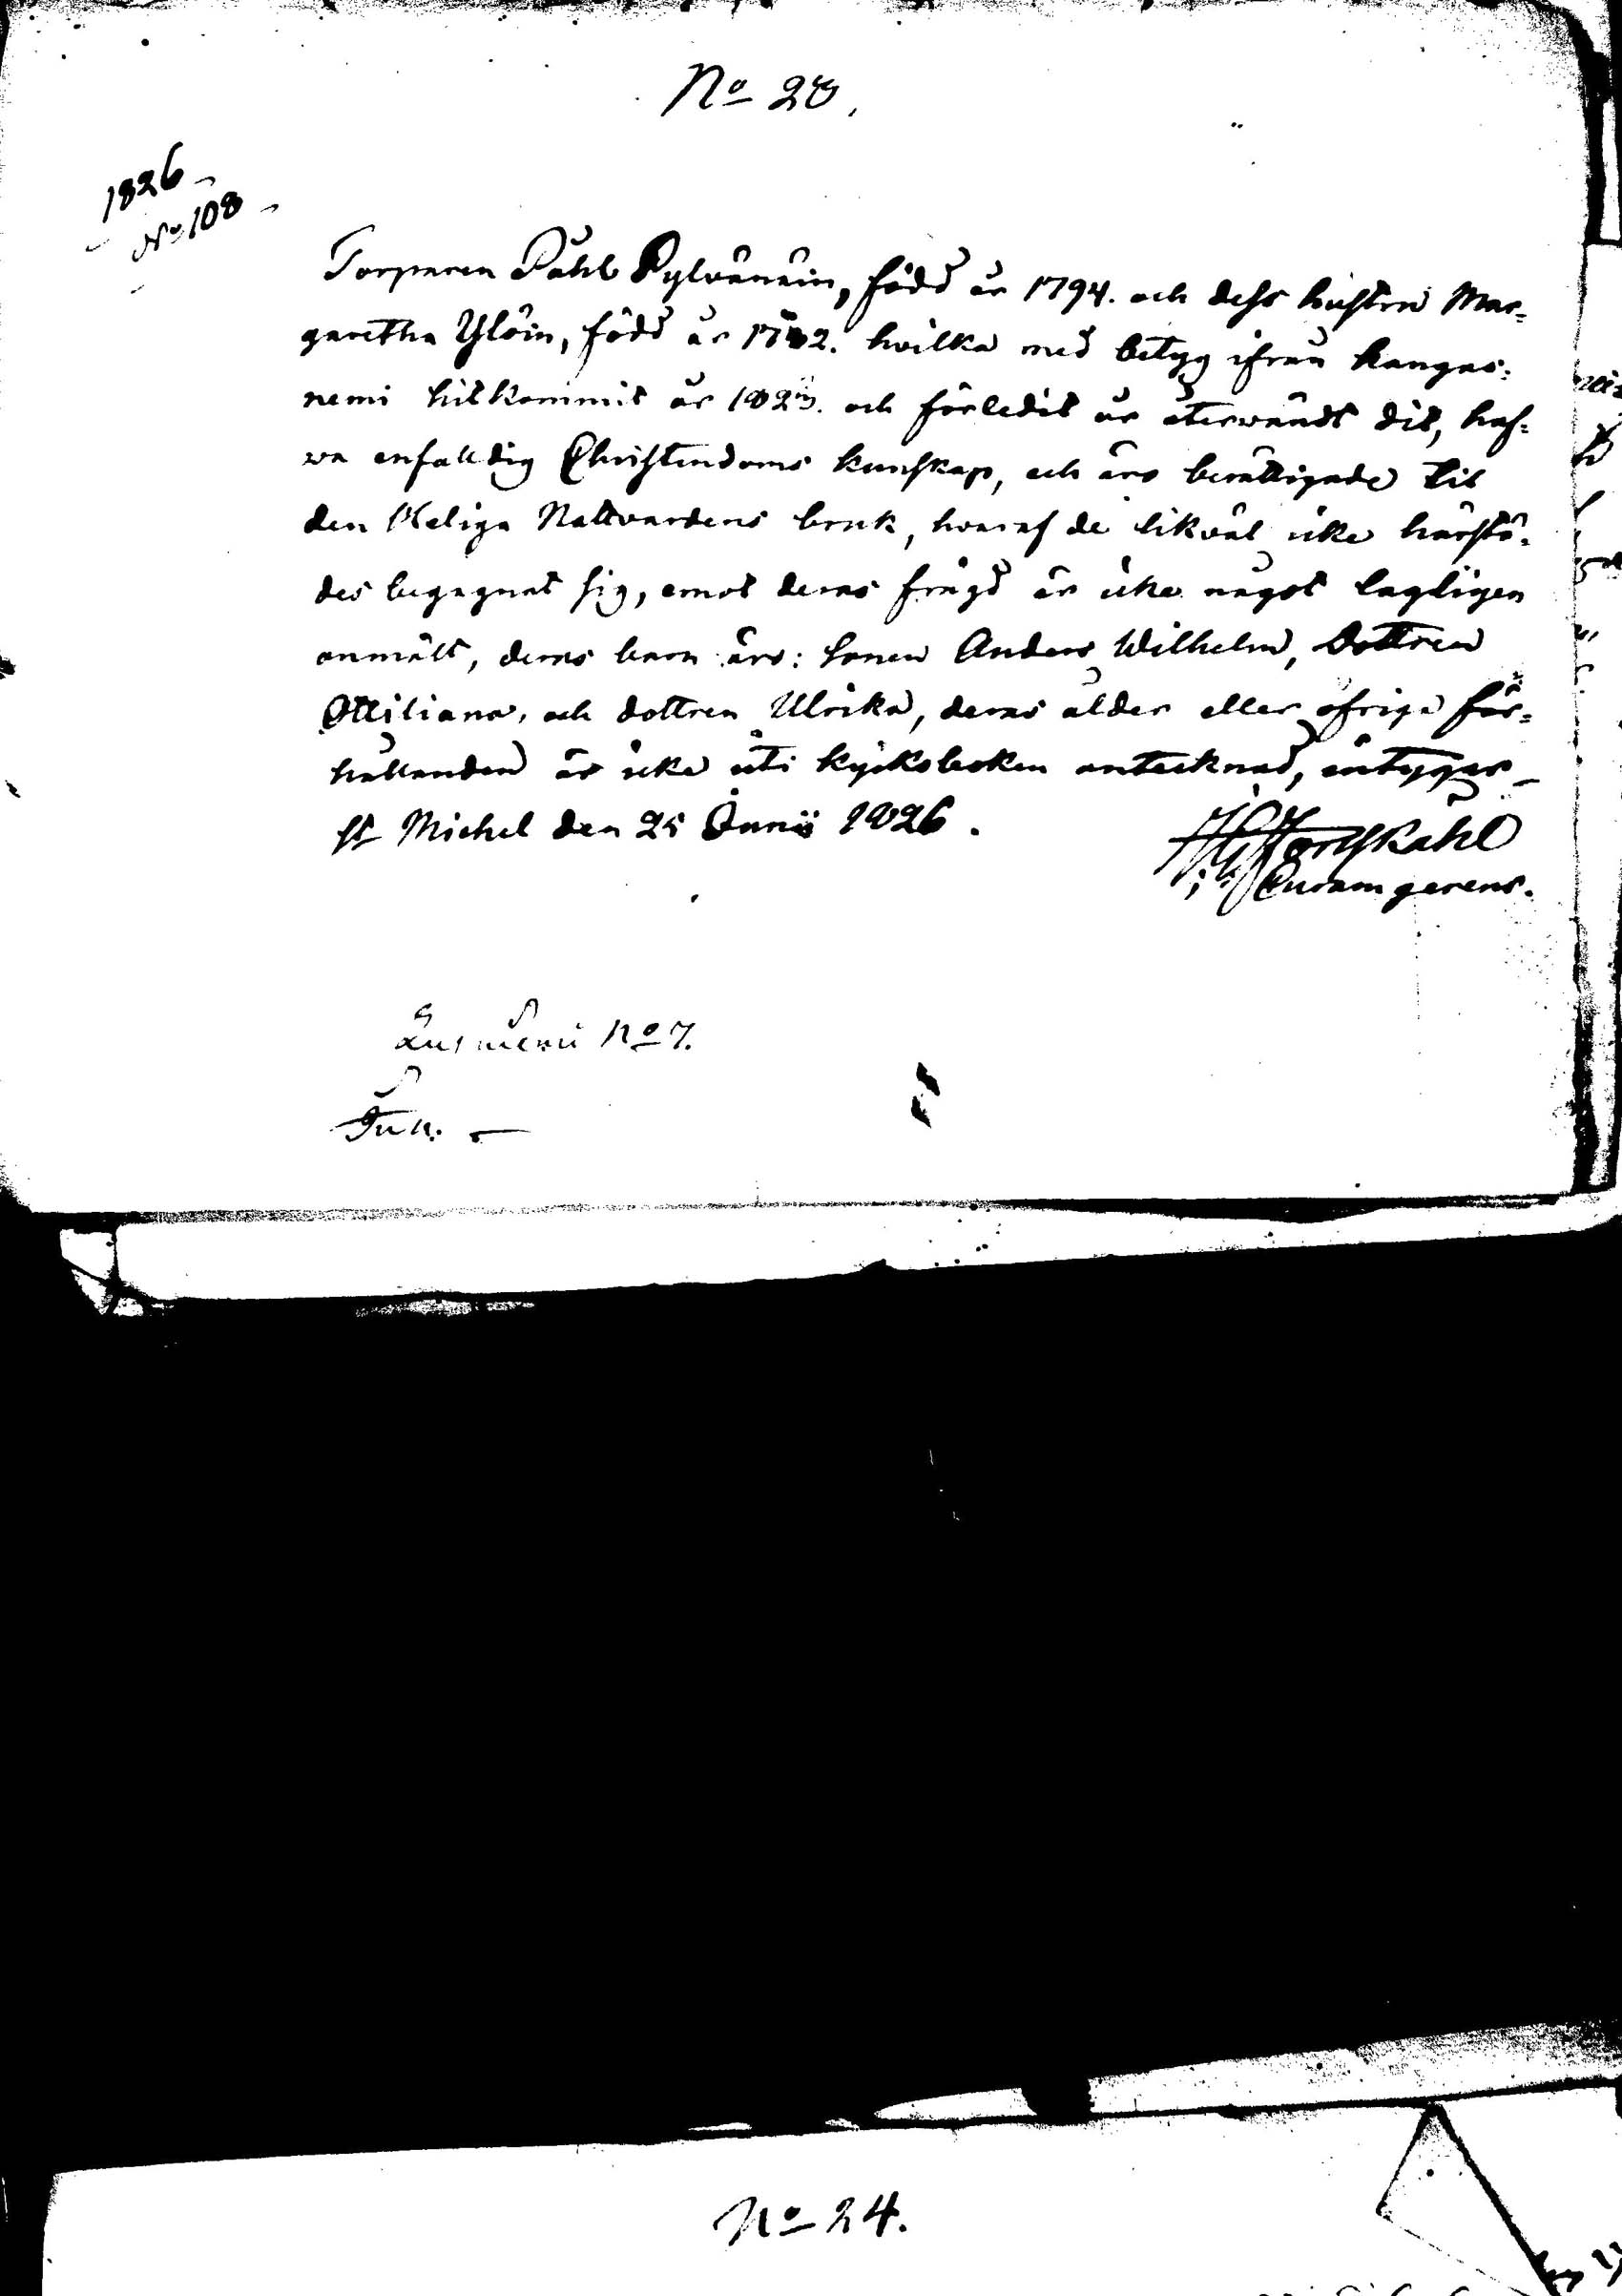 No 28.
1826
No 108
Torparen Påhl Pylvänäin, född år 1794. och dess hustru Mar=
garetha Ylöin, född år hvilka med betyg ifrån Kangas=
nemi hitkommit år och förledit år återwändt dit, haf=
wa enfalldig Christendoms kunskap, och äro berättigade til
den Heliga Nattvardens bruk, hvaraf de likväl icke härstä=
des begagnat sig, emot deras frägd är icke något lagligen
anmält, deras barn äro: Sonen Anders Wilhelm, Dottren
Ottiliana, och dottren Ulrika, deras ålder eller öfriga för=
hållanden är icke uti kyrkoboken antecknad, intygar
St Michel den 25 Junii 1826.
Forsskåhl
Curam gerens.
No 7.
No 24.